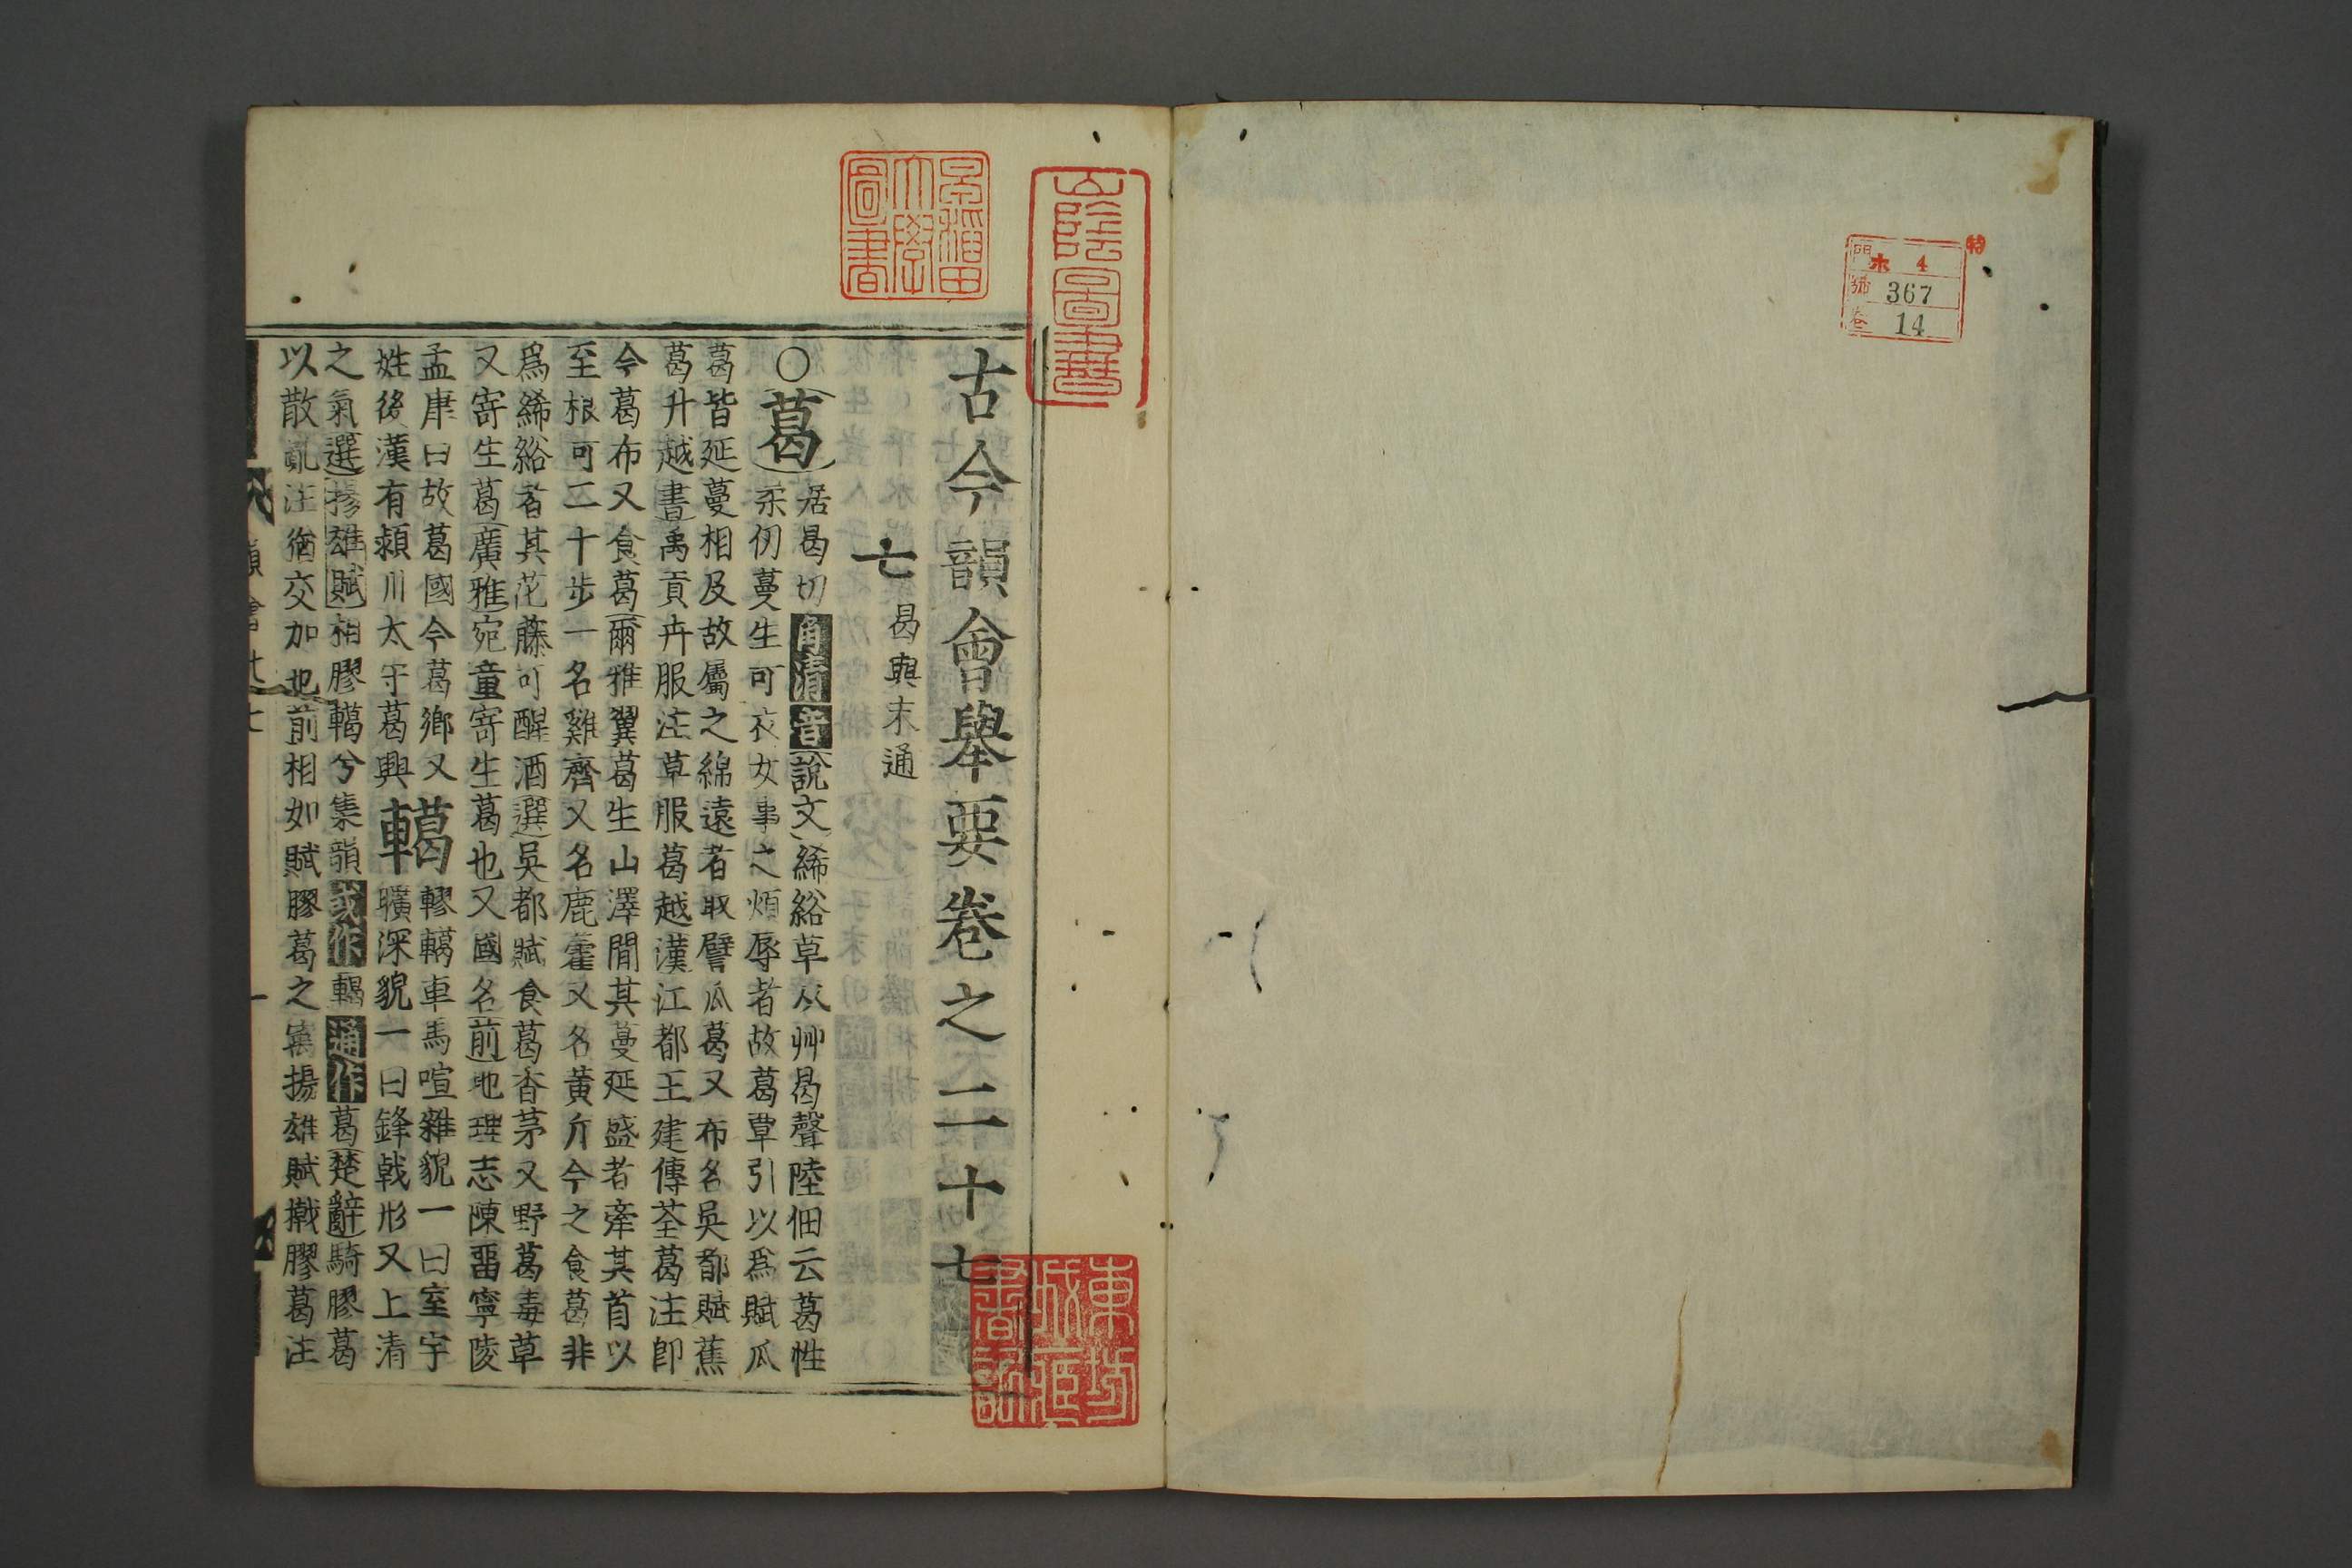 特
門 ホ 4
號 367
卷 14
山陰圖書
早稻田大學圖書
古今韻會舉要卷之二十七
七 曷與末通
○葛 居曷切角清音說文絺綌草从艸曷聲陸佃云葛性
柔仞蔓生可衣女事之煩辱者故葛覃引以爲賦瓜
葛皆延蔓相及故屬之綿遠者取譬瓜葛又布名吳都賦蕉
葛升越書禹貢卉服注草服葛越漢江都王建傳荃葛注卽
今葛布又食葛爾雅翼葛生山澤閒其蔓延盛者牽其首以
至根可二十步一名雞齊又名鹿藿又名黃斤今之食葛非
爲絺綌者其花藤可醒酒選吳都賦食葛香茅又野葛毒草
又寄生葛廣雅宛童寄生葛也又國名前地理志陳畱寧陵
孟康曰故葛國今葛鄉又
姓後漢有潁川太守葛興
轕
轇轕車馬喧雜貌一曰室宇
曠深貌一曰鋒戟形又上清
之氣選揚雄賦相膠轕兮集韻或作輵通作葛楚辭騎膠葛
以散亂注猶交加也前相如賦膠葛之寓揚雄賦撠膠葛注
韻會廿七
一